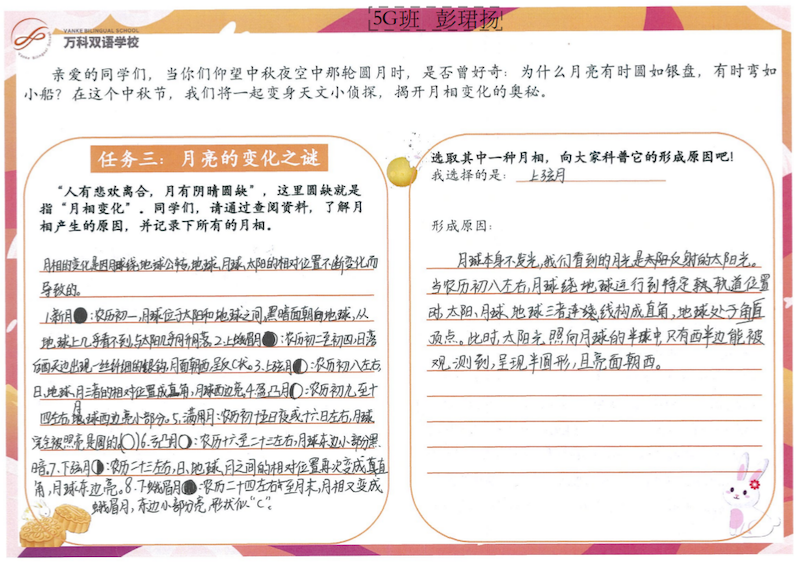 5G班 彭珺扬
VANKE BILINGUAL SCHOOL
万科双语学校
亲爱的同学们，当你们仰望中秋夜空中那轮圆月时，是否曾好奇：为什么月亮有时圆如银盘，有时弯如
小船？在这个中秋节，我们将一起变身天文小侦探，揭开月相变化的奥秘。
任务三：月亮的变化之谜
“人有悲欢离合，月有阴晴圆缺”，这里圆缺就是
指“月相变化”。同学们，请通过查阅资料，了解月
相产生的原因，并记录下所有的月相。
月相的变化是因月球绕地球公转，地球、月球、太阳的相对位置不断变化而
导致的。
1.新月：农历初一，月球位于太阳和地球之间，黑暗面朝向地球，从
地球上几乎看不到，与太阳几乎同升同落。2.上蛾眉月：农历初二至初四，日落
后西天边出现一丝纤细的银钩，月面朝西，呈反C状。3.上弦月：农历初八左右，
日、地球、月三者的相对位置成直角，月球西边亮。4.盈凸月：农历初九至十
四左右，月球西边亮小部分。5.满月：农历初十五日夜或十六日左右，月球
完全被照亮是圆的。6.亏凸月：农历十六至二十三左右，月球东边小部分黑
暗。7.下弦月：农历二十三左右，日、地球、月之间的相对位置再次变成直
角，月球东边亮。8.下蛾眉月：农历二十四左右至月末，月相又变成
蛾眉月，东边小部分亮，形状似“C”。
选取其中一种月相，向大家科普它的形成原因吧！
我选择的是：上弦月
形成原因：
月球本身不发光，我们看到的月光是太阳反射的太阳光。
当农历初八左右，月球绕地球运行到特定轨道位置
时，太阳、月球、地球三者连线构成直角，地球处于直角
顶点。此时，太阳光照向月球的半球中，只有西半边能被
观测到，呈现半圆形，且亮面朝西。